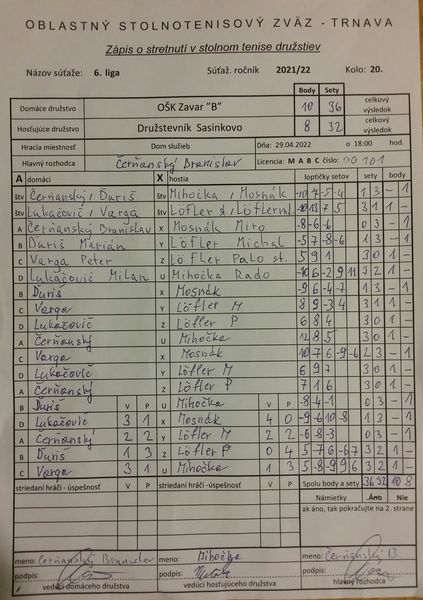 OBLASTNÝ STOLNOTENISOVÝ ZVÄZ - TRNAVA
Zápis o stretnutí v stolnom tenise družstiev
Názov súťaže: 6. liga Súťaž. ročník 2021/22 Kolo: 20.
Body Sety
Domáce družstvo OŠK Zavar "B" 10 36 celkový výsledok
Hosťujúce družstvo Družstevník Sasinkovo 8 32 celkový výsledok
Hracia miestnosť Dom služieb Dňa: 29.04.2022 o 18:00 hod.
Hlavný rozhodca Čerňanský Branislav Licencia: M A B C číslo: 00101
A domáci X hostia loptičky setov sety body
štv Čerňanský, Ďuriš štv Mihočka, Mosnák -10 7 -5 -4 1 3 - 1
štv Lukačovič, Varga štv Löfler 3 1 1 -
A Čerňanský Branislav X Mosnák Miro -8 -6 -6 0 3 - 1
B Ďuriš Marián Y Löfler Michal -5 7 -8 -6 1 3 - 1
C Varga Peter Z Löfler Palo st. 5 9 1 3 0 1 -
D Lukačovič Milan U Mihočka Rado -10 6 -2 9 11 3 2 1 -
B Ďuriš X Mosnák -9 6 -4 -7 1 3 - 1
C Varga Y Löfler M 8 9 -3 4 3 1 1 -
D Lukačovič Z Löfler P 6 8 4 3 0 1 -
A Čerňanský U Mihočka 12 8 5 3 0 1 -
C Varga X Mosnák -10 7 6 -9 -6 2 3 - 1
D Lukačovič Y Löfler M 6 9 7 3 0 1 -
A Čerňanský Z Löfler P 7 1 6 3 0 1 -
B Ďuriš V P U Mihočka V P -8 -4 -1 0 3 - 1
D Lukačovič 3 1 X Mosnák 4 0 -9 -6 10 -8 1 3 - 1
A Čerňanský 2 2 Y Löfler M 2 2 -6 -8 -3 0 3 - 1
B Ďuriš 1 3 Z Löfler P 0 4 5 -7 6 -6 7 3 2 1 -
C Varga 3 1 U Mihočka 1 3 5 -8 -9 9 6 3 2 1 -
striedaní hráči - úspešnosť V P striedaní hráči - úspešnosť V P Spolu body a sety 36 32 10 8
Námietky Áno Nie
ak áno, tak pokračujte na 2. strane
meno: Čerňanský Branislav meno: Mihočka meno: Čerňanský B
podpis: podpis: podpis:
vedúci domáceho družstva vedúci hosťujúceho družstva hlavný rozhodca